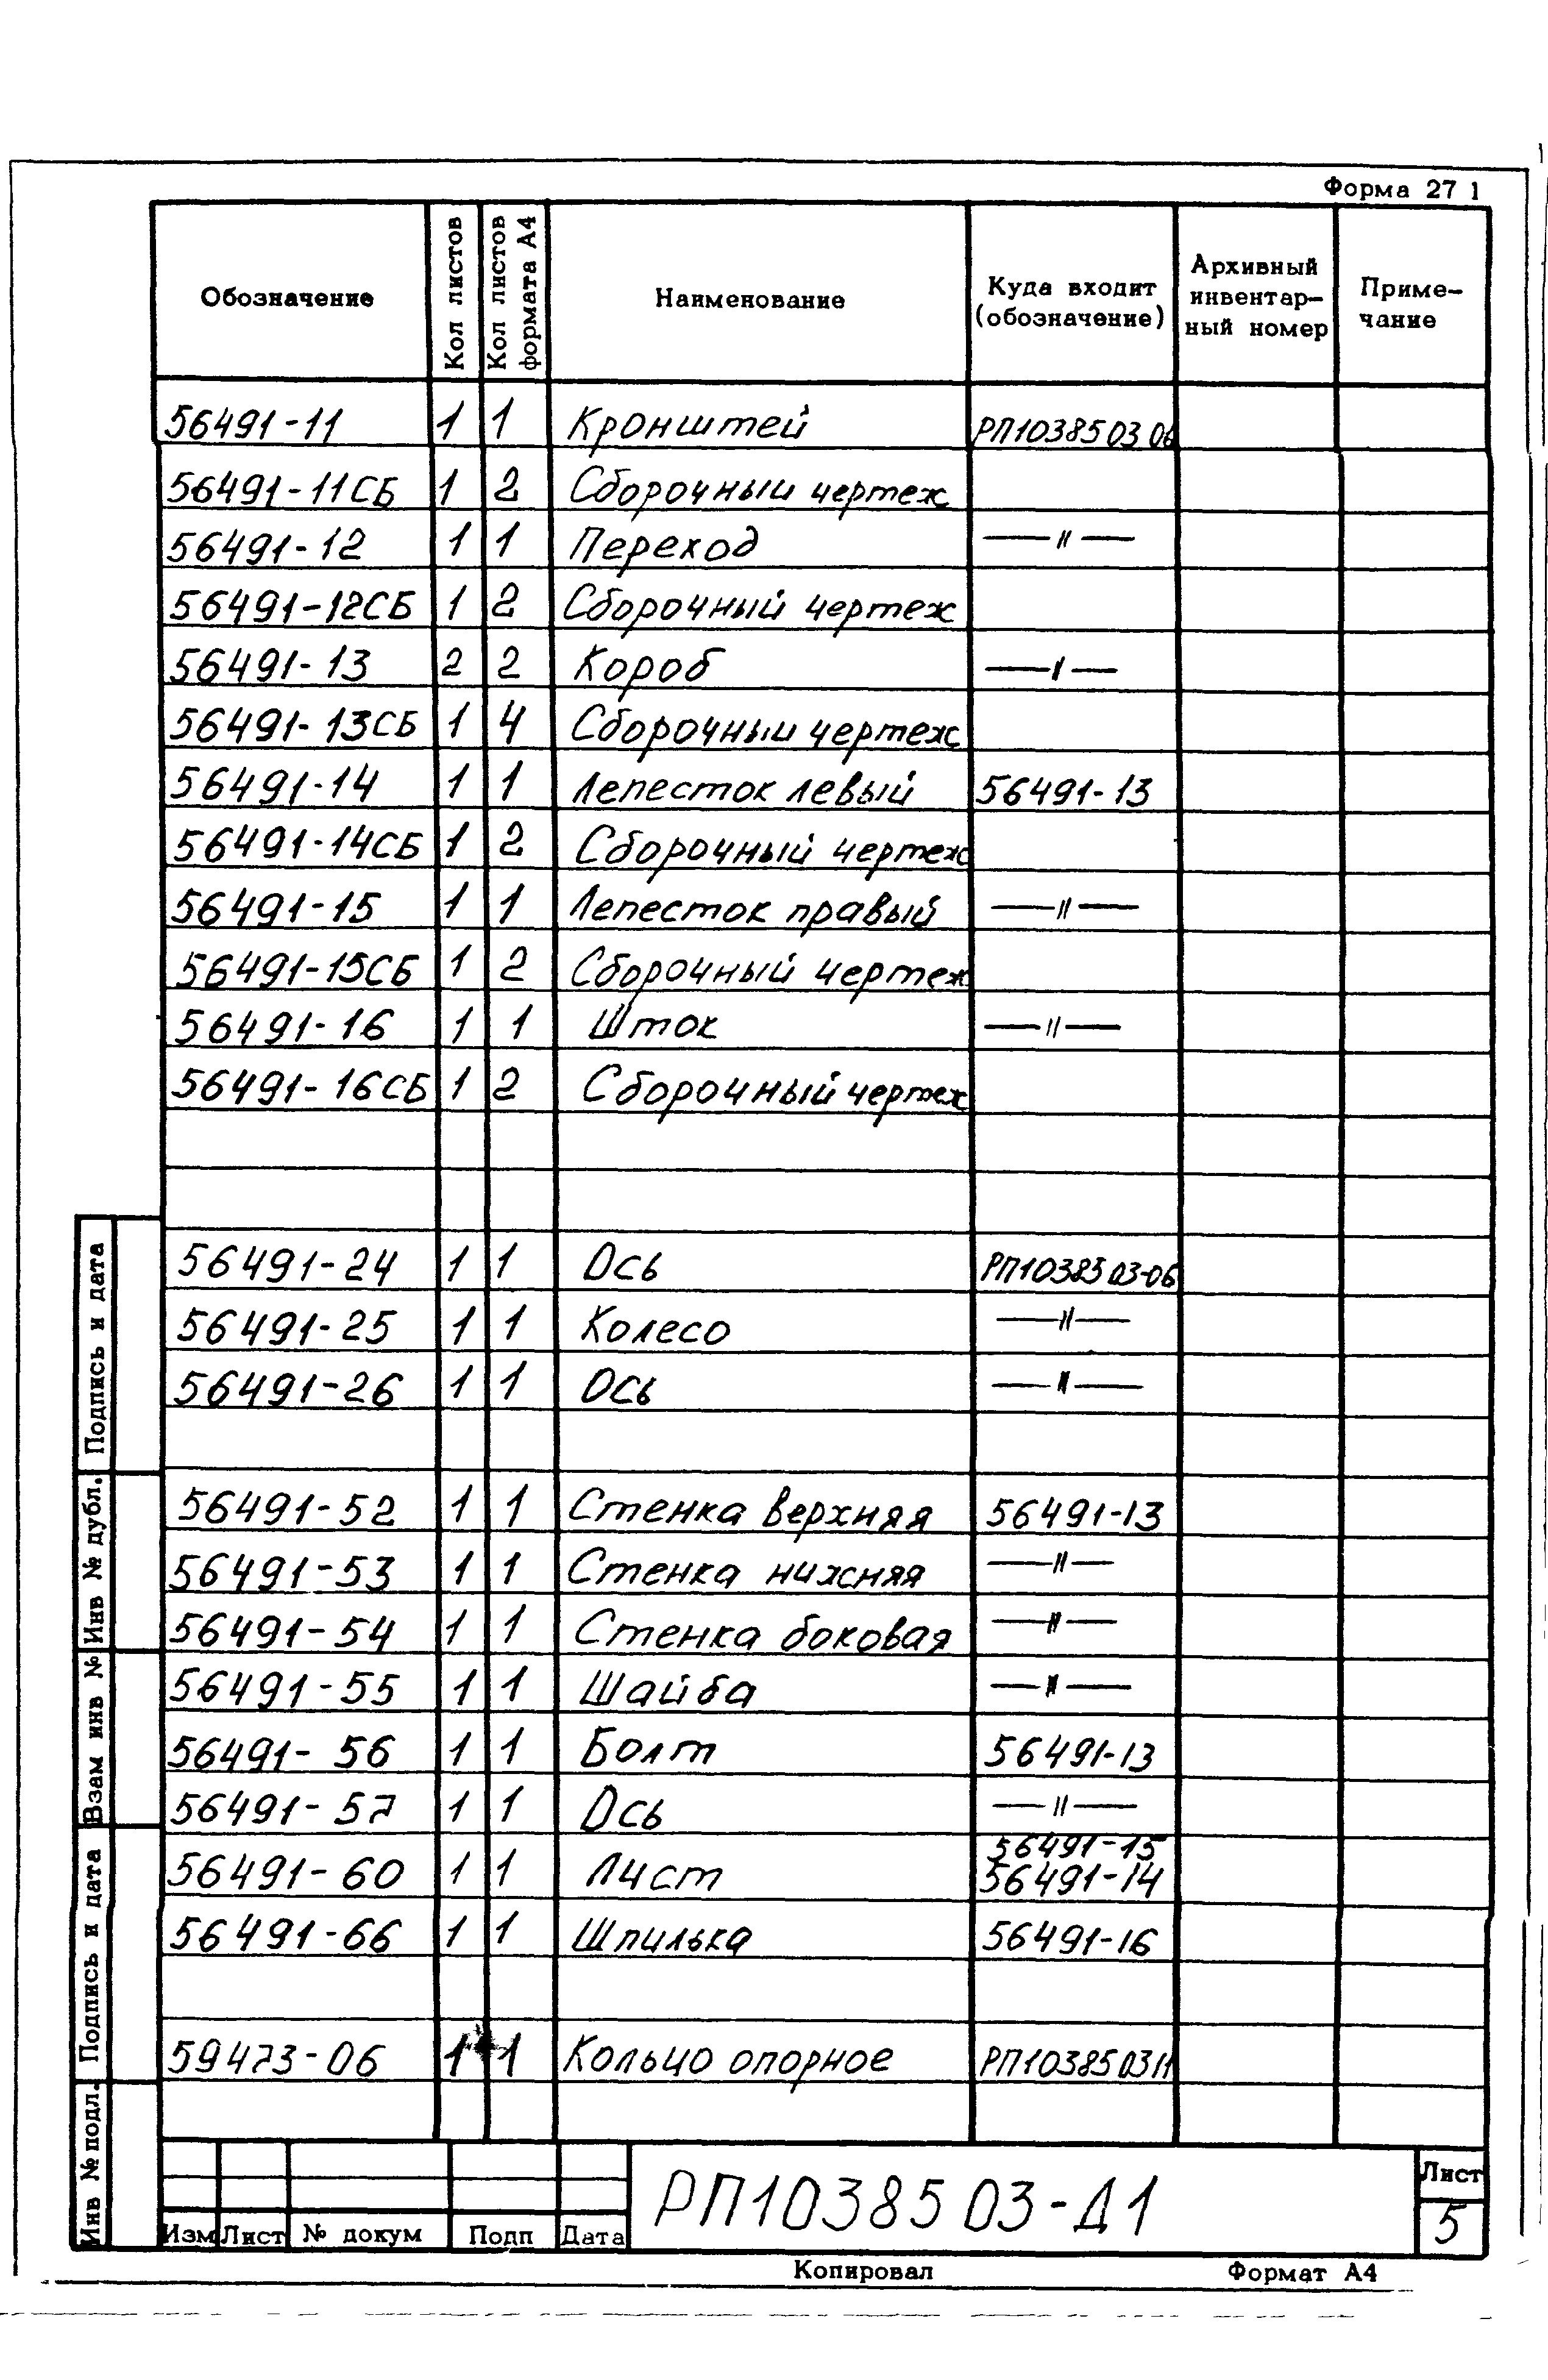 Форма 27 1
Обозначение
Кол листов
Кол листов формата А4
Наименование
Куда входит (обозначение)
Архивный инвентар- ный номер
Приме- чание
56491-11 1 1 Кронштей РП1038503 06
56491-11СБ 1 2 Сборочный чертеж
56491-12 1 1 Переход —〃—
56491-12СБ 1 2 Сборочный чертеж
56491-13 2 2 Короб —〃—
56491-13СБ 1 4 Сборочный чертеж
56491-14 1 1 Лепесток левый 56491-13
56491-14СБ 1 2 Сборочный чертеж
56491-15 1 1 Лепесток правый —〃—
56491-15СБ 1 2 Сборочный чертеж
56491-16 1 1 Шток —〃—
56491-16СБ 1 2 Сборочный чертеж
56491-24 1 1 Ось РП10385 03-06
56491-25 1 1 Колесо —〃—
56491-26 1 1 Ось —〃—
56491-52 1 1 Стенка верхняя 56491-13
56491-53 1 1 Стенка нижняя —〃—
56491-54 1 1 Стенка боковая —〃—
56491-55 1 1 Шайба —〃—
56491-56 1 1 Болт 56491-13
56491-57 1 1 Ось —〃—
56491-60 1 1 Лист 56491-15 56491-14
56491-66 1 1 Шпилька 56491-16
59473-06 1 1 Кольцо опорное РП10385 0311
Подпись и дата
Инв № дубл.
Взам инв №
Подпись и дата
Инв № подл.
Изм Лист № докум Подп Дата
РП10385 03-Д1
Лист
5
Копировал Формат А4